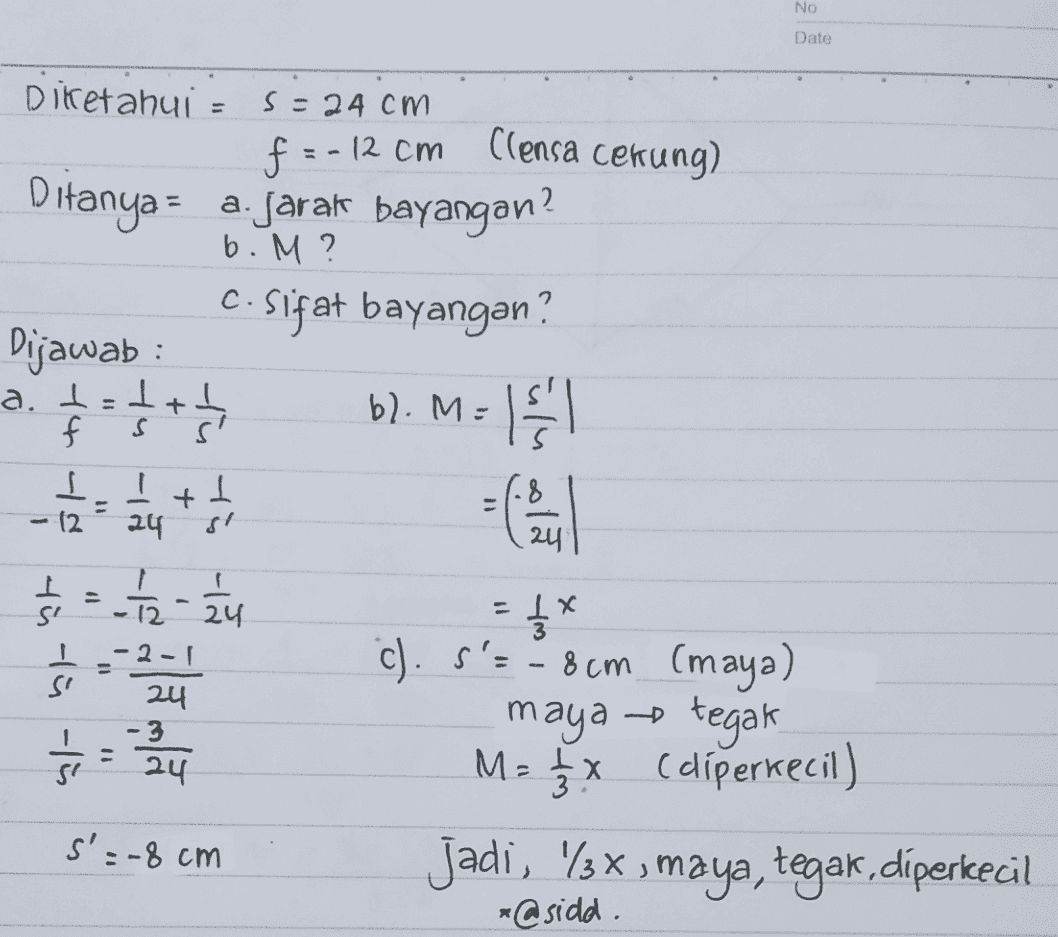 No
Date
Diketahui = s = 24 cm
f = -12 cm (lensa cekung)
Ditanya = a. Jarak bayangan?
b. M ?
c. Sifat bayangan?
Dijawab :
a. 1/f = 1/s + 1/s'
1/-12 = 1/24 + 1/s'
1/s' = 1/-12 - 1/24
1/s' = -2-1/24
1/s' = -3/24
s' = -8 cm
b). M = |s'/s|
= (-8/24|
= 1/3 x
c). s' = -8 cm (maya)
maya → tegak
M = 1/3 x (diperkecil)
Jadi, 1/3 x, maya, tegak, diperkecil
*@sidd.